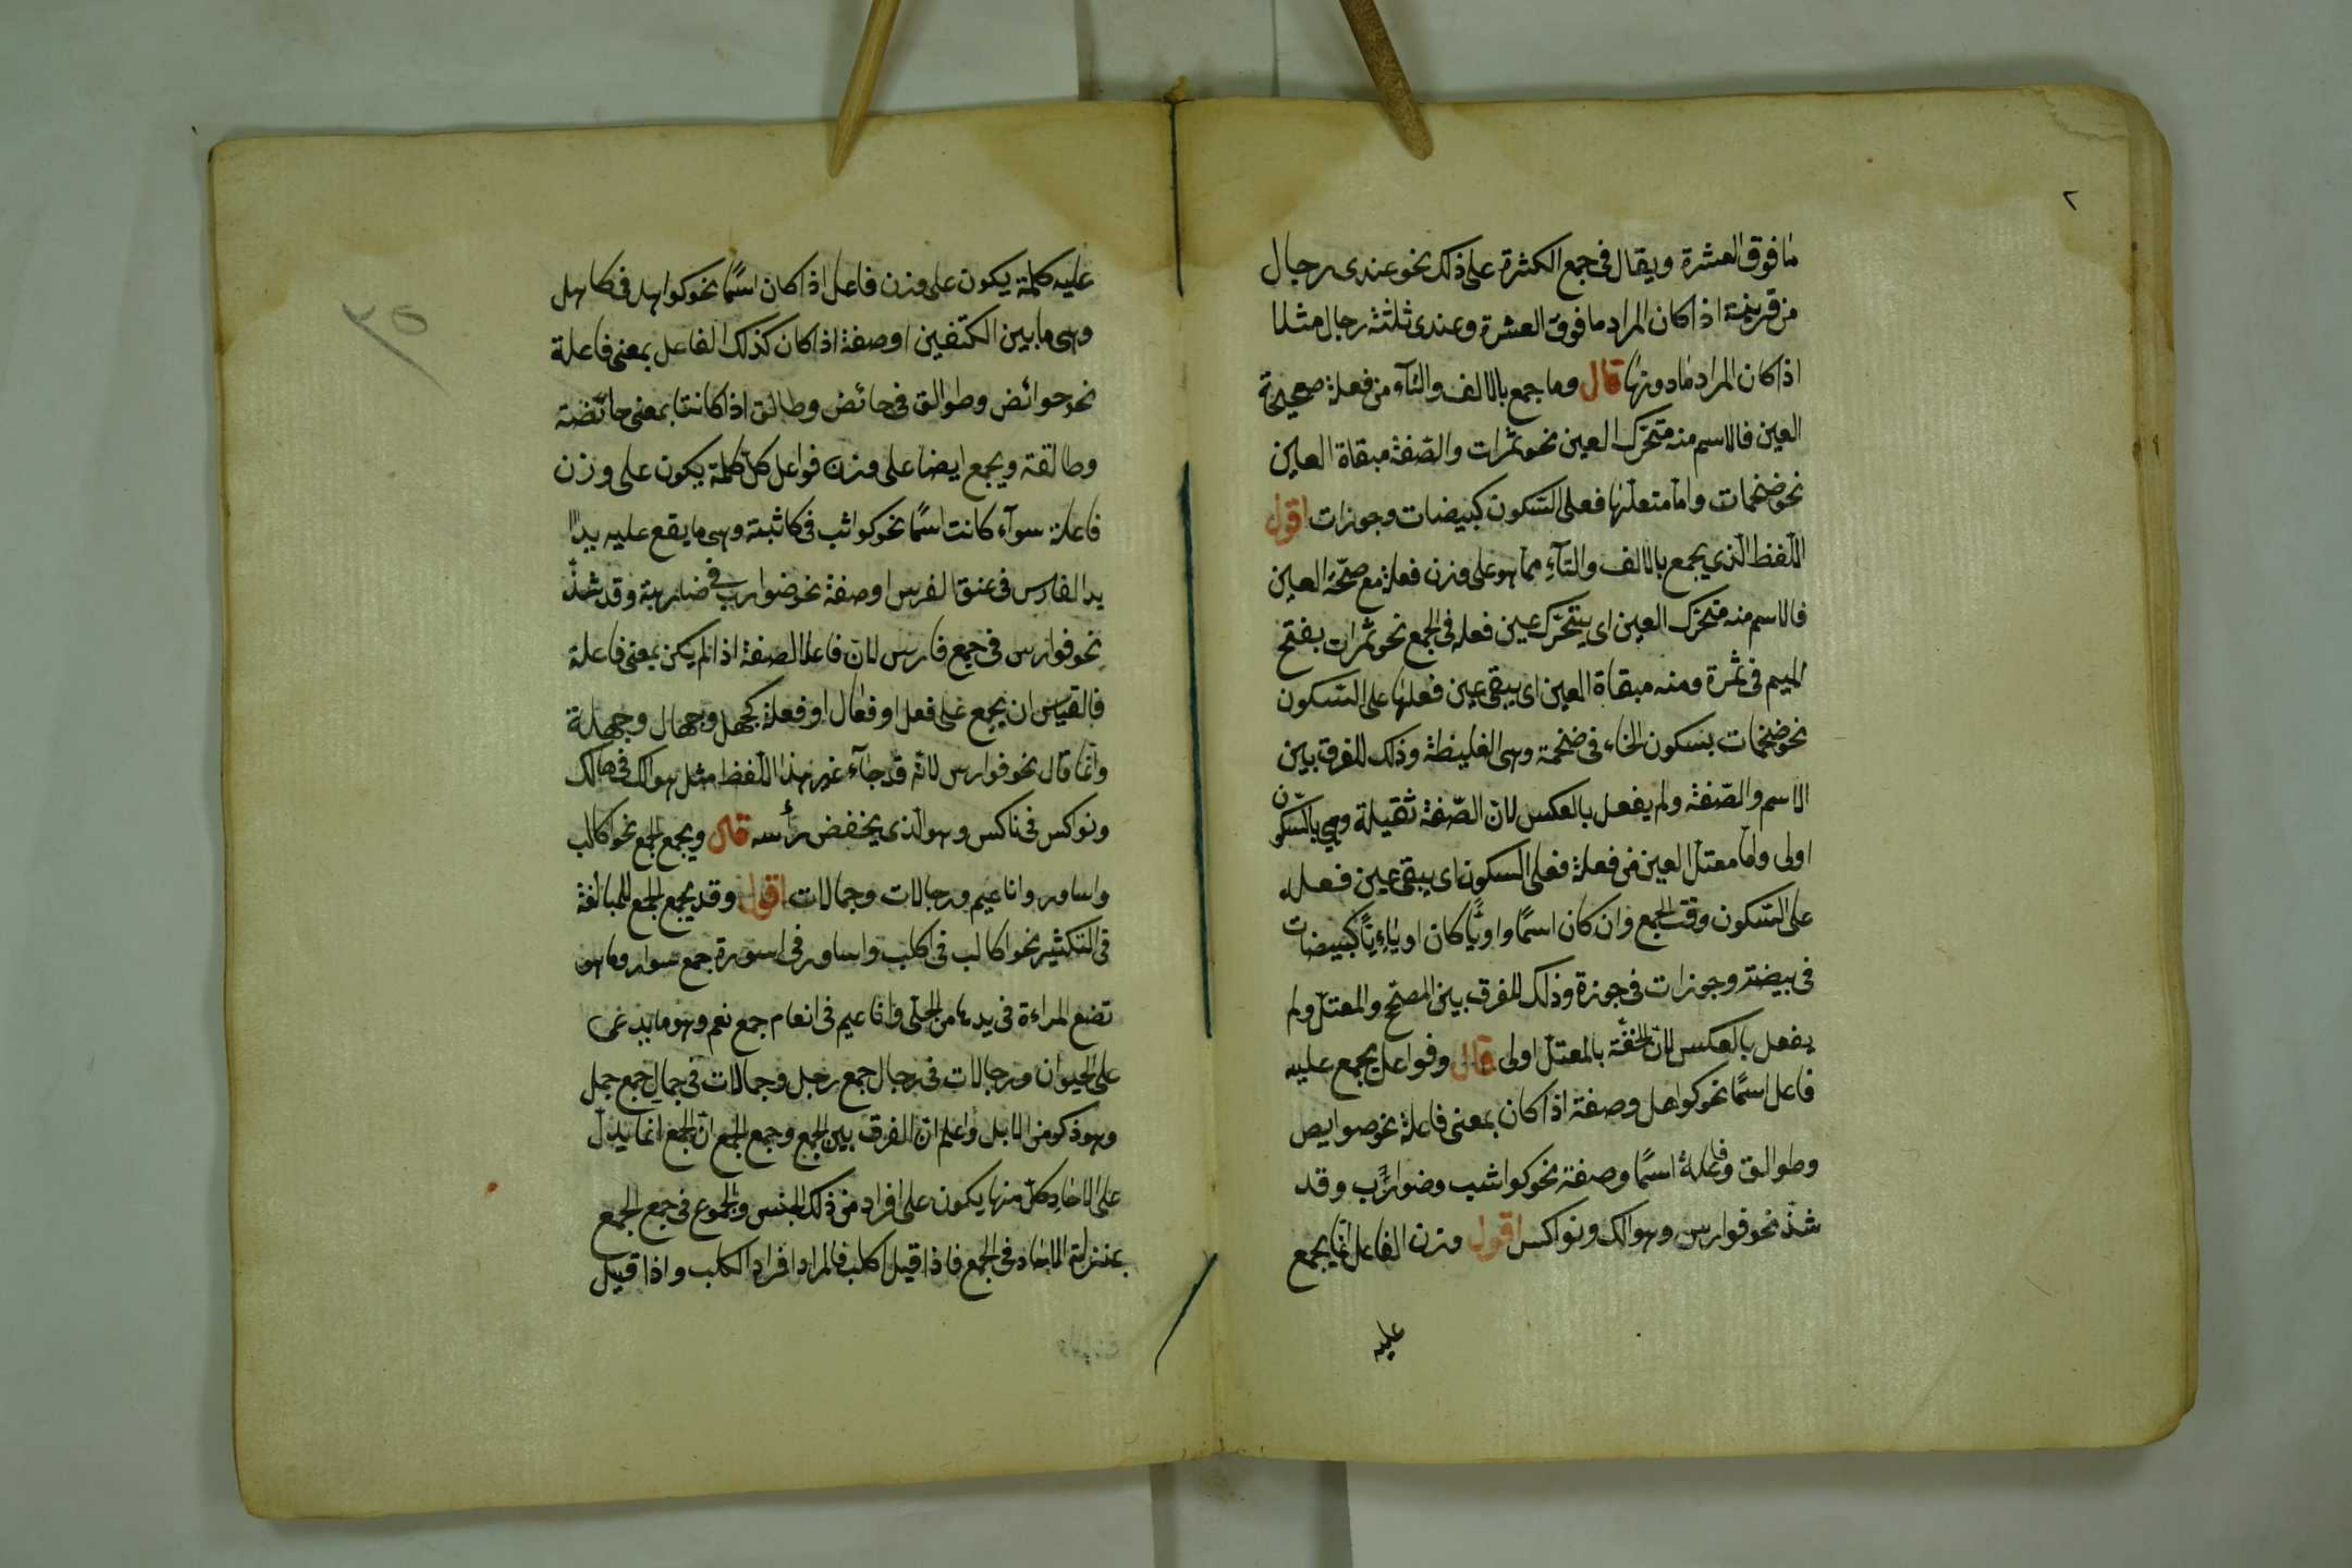 ٢
مافوق العشرة ويقال فى جمع الكثرة على ذلك نحو عندى رجال
من قرينة اذا كان المراد مافوق العشرة وعندى ثلثة رجال مثلا
اذا كان المراد مادونها قال وما جمع بالالف والتآء من فعلة صحيحة
العين فالاسم منه متحرّك العين نحو تمرات والصّفة مبقاة العين
نحو ضخمات وامّا معتلّها فعلى السّكون كبيضات وجوزات اقول
اللّفظ الّذي يجمع بالالف والتّآءِ ممّا هو على وزن فعلة مع صحّة العين
فالاسم منه متحرّك العين اى يتحرّك عين فعله فى الجمع نحو تمرات بفتح
الميم فى تمرة ومنه مبقاة العين اى يبقى عين فعلها على السّكون
نحو ضخمات بسكون الخاء فى ضخمة وهى الغليظة وذلك للفرق بين
الاسم والصّفة ولم يفعل بالعكس لانّ الصّفة ثقيلة وهي بالسّكون
اولى وامّا معتلّ العين من فعلة فعلى السكون اى يبقى عين فعله
على السّكون وقت الجمع وان كان اسمًا واويًّا كان او يائيًّا كبيضات
فى بيضة وجوزات فى جوزة وذلك للفرق بين الصحّ والمعتلّ ولم
يفعل بالعكس لانّ الخفّة بالمعتلّ اولى قال وفواعل يجمع عليه
فاعل اسمًا نحو كواهل وصفة اذا كان بمعنى فاعلة نحو حوايض
وطوالق وفاعلة اسمًا وصفة نحو كواثب وضوارب وقد
شذّ نحو فوارس وهوالك ونواكس اقول وزن الفاعل انّما يجمع
عليه
٣٥
عليه كلمة يكون على وزن فاعل اذا كان اسمًا نحو كواهل فى كاهل
وهى مابين الكتفين او صفة اذا كان كذلك الفاعل بمعنى فاعلة
نحو حوائض وطوالق فى حائض وطالق اذا كانتا بمعنى حائضة
وطالقة ويجمع ايضا على وزن فواعل كلّ كلمة يكون على وزن
فاعلة سوآء كانت اسمًا نحو كواثب فى كاثبة وهى مايقع عليه يدا
يد الفارس فى عنق الفرس او صفة نحو ضوارب فى ضاربة وقد شذّ
نحو فوارس فى جمع فارس لانّ فاعلا الصفة اذا لم يكن بمعنى فاعلة
فالقياس ان يجمع على فعل او فعّال او فعلة كجهل وجهّال وجهلة
وانّما قال نحو فوارس لانّه قد جآء غير هذا اللّفظ مثل هوالك فى هالك
ونواكس فى ناكس وهو الّذى يخفض رأسه قال ويجمع الجمع نحو اكالب
واساور واناعيم ورجالات وجمالات اقول وقد يجمع الجمع للمبالغة
فى التكثير نحو اكالب فى اكلب واساور فى اسورة جمع سوار وماهو
تضع المراءة فى يدها من الحلىّ واناعيم فى انعام جمع نعم وهو
على الحيوان ورجالات فى رجال جمع رجل وجمالات فى جمال جمع جمل
وهو ذكر من الابل واعلم انّ الفرق بين الجمع وجمع الجمع انّ الجمع انّما يدلّ
على الاحادِ كلّ منها يكون على افراد من ذلك الجنس والجموع فى جمع الجمع
بمنزلة الاحاد فى الجمع فاذا قيل اكلب فالمراد افراد الكلب واذا قيل